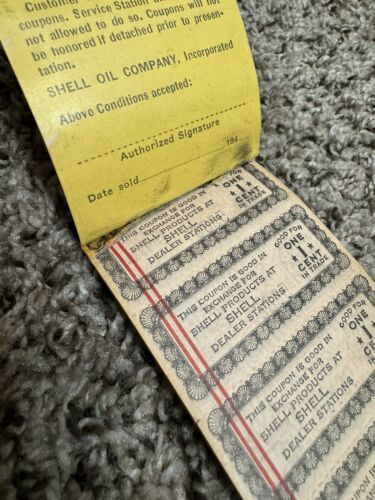 Customer
coupons. Service Station
not allowed to do so. Coupons will not
be honored if detached prior to presen-
tation.
SHELL OIL COMPANY, Incorporated
Above Conditions accepted:
Authorized Signature
Date sold 194
THIS COUPON IS GOOD IN
EXCHANGE FOR
SHELL PRODUCTS AT
SHELL
DEALER STATIONS
GOOD FOR
ONE
1
CENT
IN TRADE
THIS COUPON IS GOOD IN
EXCHANGE FOR
SHELL PRODUCTS AT
SHELL
DEALER STATIONS
GOOD FOR
ONE
1
CENT
IN TRADE
THIS COUPON IS GOOD IN
EXCHANGE FOR
SHELL PRODUCTS AT
SHELL
DEALER STATIONS
GOOD FOR
ONE
1
CENT
IN TRADE